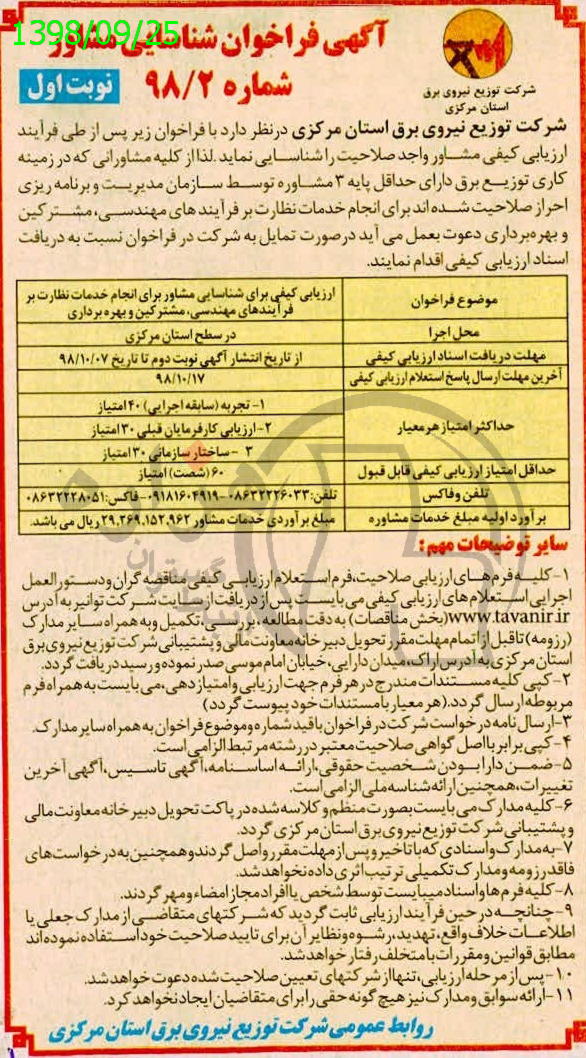 1398/09/25
آگهی فراخوان شناسایی مشاور
شماره ۹۸/۲
نوبت اول
شرکت توزیع نیروی برق
استان مرکزی
شرکت توزیع نیروی برق استان مرکزی درنظر دارد با فراخوان زیر پس از طی فرآیند
ارزیابی کیفی مشاور واجد صلاحیت را شناسایی نماید .لذا از کلیه مشاورانی که در زمینه
کاری توزیع برق دارای حداقل پایه ۳ مشاوره توسط سازمان مدیریت و برنامه ریزی
احراز صلاحیت شده اند برای انجام خدمات نظارت بر فرآیند های مهندسی، مشترکین
و بهره برداری دعوت بعمل می آید درصورت تمایل به شرکت در فراخوان نسبت به دریافت
اسناد ارزیابی کیفی اقدام نمایند.
موضوع فراخوان
ارزیابی کیفی برای شناسایی مشاور برای انجام خدمات نظارت بر
فرآیندهای مهندسی، مشترکین و بهره برداری
محل اجرا
در سطح استان مرکزی
مهلت دریافت اسناد ارزیابی کیفی
از تاریخ انتشار آگهی نوبت دوم تا تاریخ ۹۸/۱۰/۰۷
آخرین مهلت ارسال پاسخ استعلام ارزیابی کیفی
۹۸/۱۰/۱۷
حداکثر امتیاز هر معیار
۱- تجربه (سابقه اجرایی) ۴۰ امتیاز
۲- ارزیابی کارفرمایان قبلی ۳۰ امتیاز
۳ - ساختار سازمانی ۳۰ امتیاز
حداقل امتیاز ارزیابی کیفی قابل قبول
۶۰ (شصت) امتیاز
تلفن وفاکس
تلفن:۰۸۶۳۲۲۲۶۰۳۳-۰۹۱۸۱۶۰۴۹۱۹-فاکس:۰۸۶۳۲۲۲۸۰۵۱
برآورد اولیه مبلغ خدمات مشاوره
مبلغ برآوردی خدمات مشاور ۲۹,۲۶۹,۱۵۲,۹۶۲ ریال می باشد.
سایر توضیحات مهم:
۱-کلیه فرم های ارزیابی صلاحیت،فرم استعلام ارزیابی کیفی مناقصه گران ودستورالعمل
اجرایی استعلام های ارزیابی کیفی می بایست پس از دریافت از سایت شرکت توانیر به آدرس
www.tavanir.ir(بخش مناقصات) به دقت مطالعه ، بررسی ، تکمیل و به همراه سایر مدارک
(رزومه) تا قبل از اتمام مهلت مقرر تحویل دبیرخانه معاونت مالی و پشتیبانی شرکت توزیع نیروی برق
استان مرکزی به آدرس اراک، میدان دارایی، خیابان امام موسی صدر نموده و رسید دریافت گردد.
۲-کپی کلیه مستندات مندرج در هر فرم جهت ارزیابی وامتیاز دهی، می بایست به همراه فرم
مربوطه ارسال گردد.(هر معیار با مستندات خود پیوست گردد)
۳-ارسال نامه درخواست شرکت در فراخوان با قید شماره و موضوع فراخوان به همراه سایر مدارک.
۴-کپی برابر با اصل گواهی صلاحیت معتبر در رشته مرتبط الزامی است.
۵-ضمن دارا بودن شخصیت حقوقی ،ارائه اساسنامه، آگهی تاسیس، آگهی آخرین
تغییرات، همچنین ارائه شناسه ملی الزامی است.
۶-کلیه مدارک می بایست بصورت منظم و کلاسه شده در پاکت تحویل دبیرخانه معاونت مالی
و پشتیبانی شرکت توزیع نیروی برق استان مرکزی گردد.
۷-به مدارک واسنادی که با تاخیر و پس از مهلت مقرر واصل گردند وهمچنین به درخواست های
فاقد رزومه ومدارک تکمیلی ترتیب اثری داده نخواهد شد.
۸-کلیه فرم ها واسناد میبایست توسط شخص یا افراد مجاز امضاء ومهر گردند.
۹-چنانچه در حین فرآیند ارزیابی ثابت گردید که شرکتهای متقاضی از مدارک جعلی یا
اطلاعات خلاف واقع، تهدید، رشوه ونظایر آن برای تایید صلاحیت خود استفاده نموده اند
مطابق قوانین و مقررات با متخلف رفتار خواهد شد.
۱۰-پس از مرحله ارزیابی، تنها از شرکتهای تعیین صلاحیت شده دعوت خواهد شد.
۱۱-ارائه سوابق ومدارک نیز هیچ گونه حقی را برای متقاضیان ایجاد نخواهد کرد.
روابط عمومی شرکت توزیع نیروی برق استان مرکزی